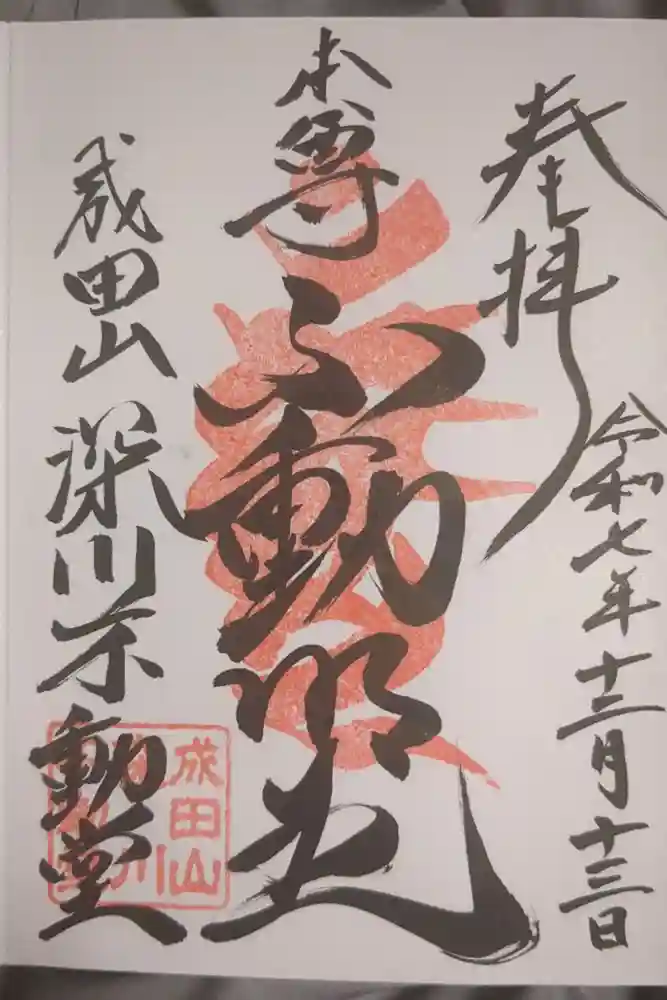 奉拝
令和七年十二月十三日
本尊
不動明王
成田山
深川不動堂
成田山